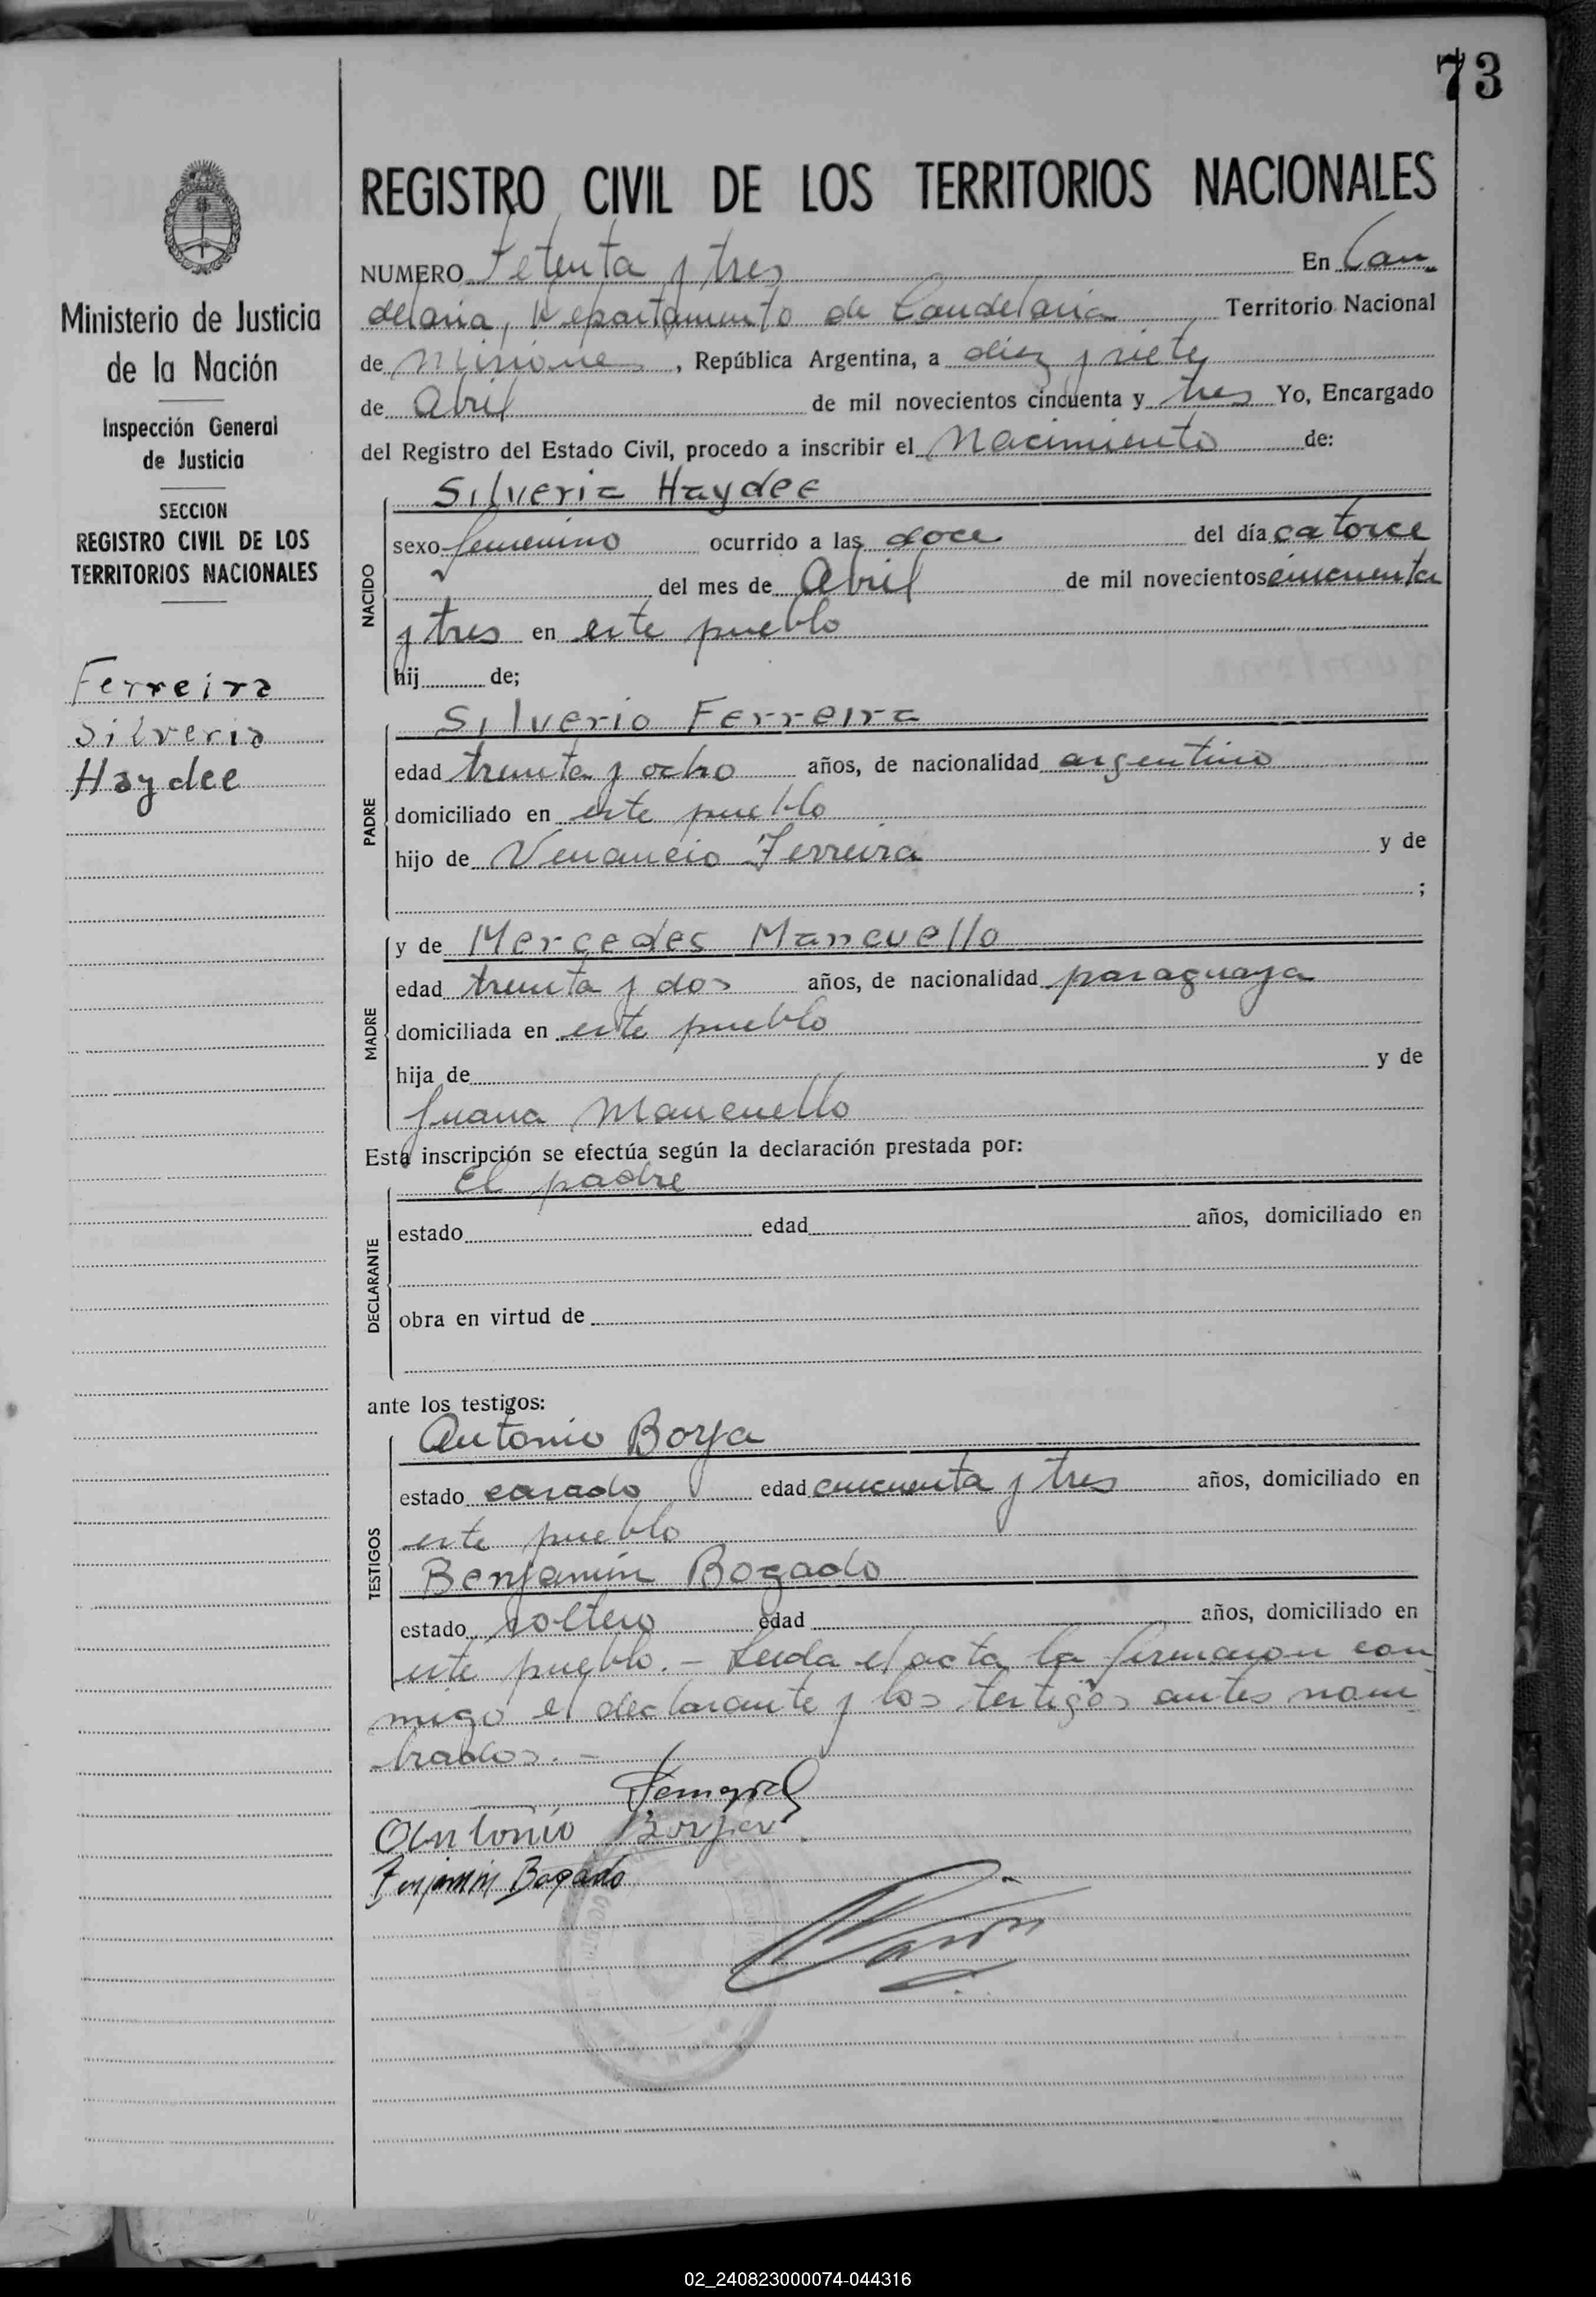 73
Ministerio de Justicia
de la Nación
Inspección General
de Justicia
SECCION
REGISTRO CIVIL DE LOS
TERRITORIOS NACIONALES
Ferreira
Silveria
Haydee
REGISTRO CIVIL DE LOS TERRITORIOS NACIONALES
NUMERO Setenta y tres En Can
delaria, Departamento de Candelaria Territorio Nacional
de Misiones, República Argentina, a diez y siete
de Abril de mil novecientos cincuenta y tres Yo, Encargado
del Registro del Estado Civil, procedo a inscribir el Nacimiento de:
NACIDO
Silveria Haydee
sexo femenino ocurrido a las doce del día catorce
del mes de Abril de mil novecientos cincuenta
y tres en este pueblo
hij de;
PADRE
Silverio Ferreira
edad treinta y ocho años, de nacionalidad argentino
domiciliado en este pueblo
hijo de Venancio Ferreira y de
;
MADRE
y de Mercedes Mancuello
edad treinta y dos años, de nacionalidad paraguaya
domiciliada en este pueblo
hija de y de
Juana Mancuello
Esta inscripción se efectúa según la declaración prestada por:
DECLARANTE
el padre
estado edad años, domiciliado en
obra en virtud de
ante los testigos:
TESTIGOS
Antonio Borja
estado casado edad cincuenta y tres años, domiciliado en
este pueblo
Benjamin Bogado
estado soltero edad años, domiciliado en
este pueblo. - Leida el acta la firmaron con
migo el declarante y los testigos antes nom
brados. -
Antonio Borja
Benjamin Bogado
02_240823000074-044316